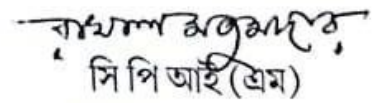 রাখাল মজুমদার
সি পি আই (এম)